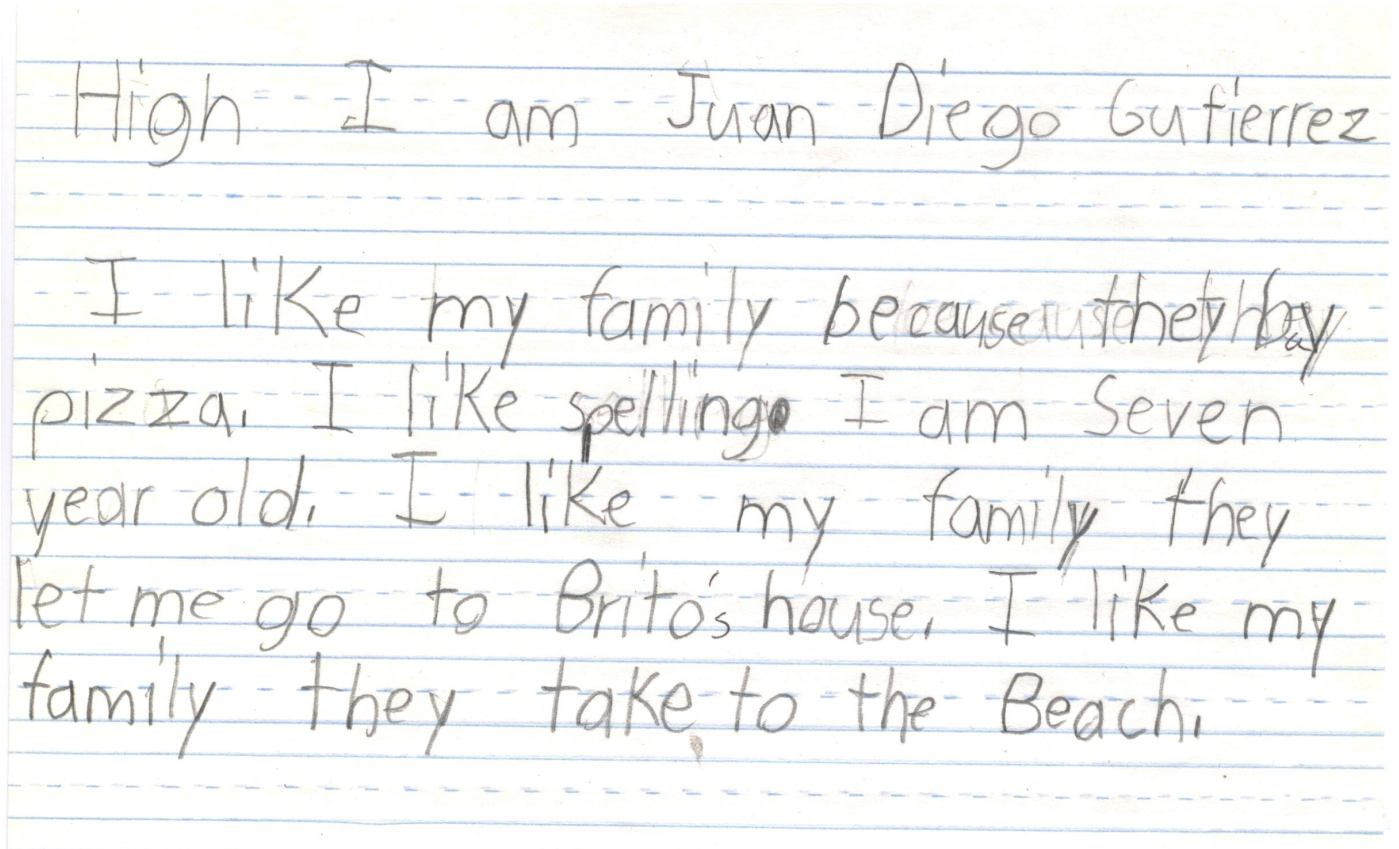 High I am Juan Diego Gutierrez
I like my family because they by
pizza. I like spelling. I am Seven
year old. I like my family they
let me go to Brito's house. I like my
family they take to the Beach.